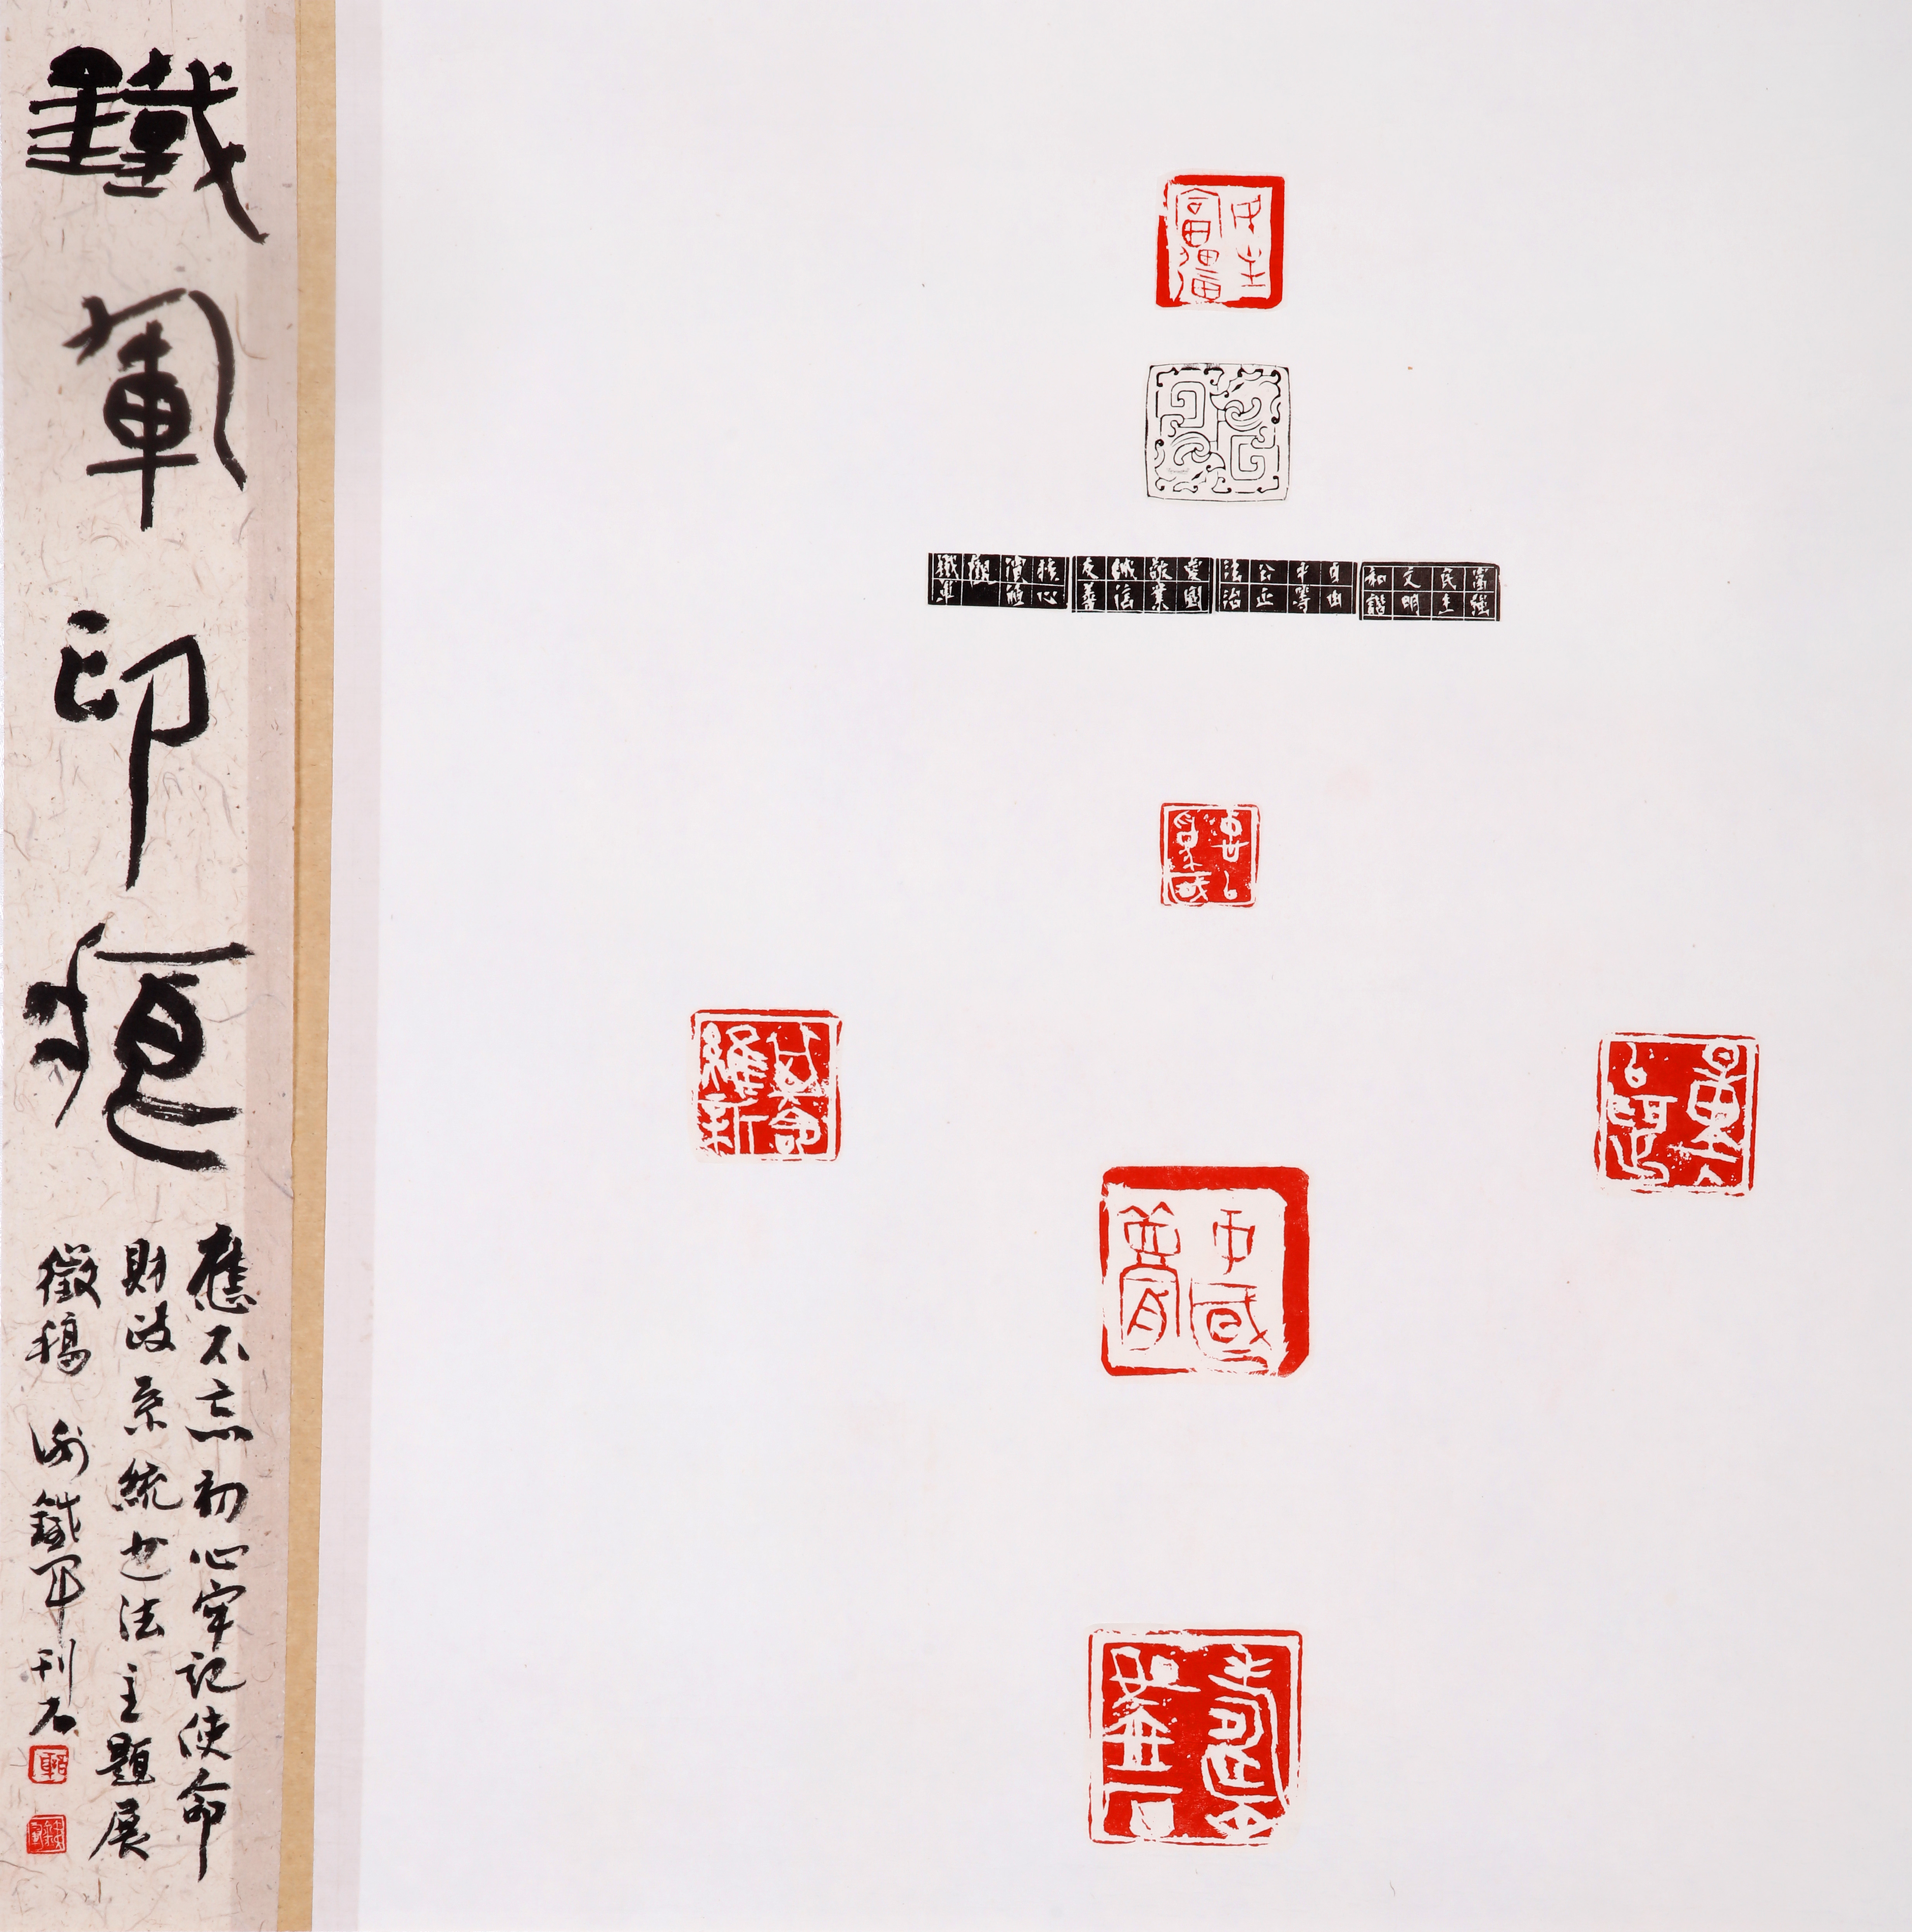 鐵軍印痕
應不忘初心牢記使命
財政系統書法主題展
徵稿 謝鐵軍刊石
富強 民主 文明 和諧
自由 平等 公正 法治
愛國 敬業 誠信 友善
核心 價值 觀 鐵軍
其命維新
中國夢